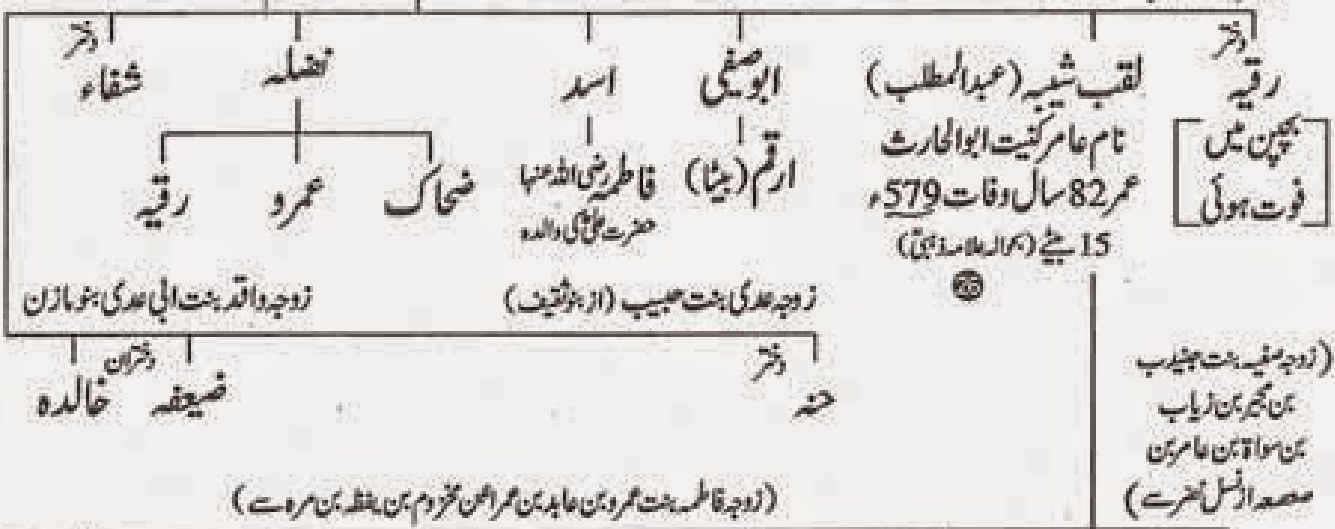 دختر
رقیہ
بچپن میں
فوت ہوئی
لقب شیبہ (عبدالمطلب)
نام عامر کنیت ابوالحارث
عمر 82 سال وفات 579ء
15 بیٹے (بحوالہ علامہ ذہبیؒ)
ابوصفی
ارقم (بیٹا)
اسد
فاطمہ رضی اللہ عنہا
حضرت علیؓ کی والدہ
نضلہ
ضحاک
عمرو
رقیہ
دختر
شفاء
زوجہ عدی بنت حبیب (از بنو ثقیف)
زوجہ واقد بنت ابی عدی بنو مازن
دختر
حنہ
دختران
ضیعفہ
خالدہ
(زوجہ صفیہ بنت جنیدب
بن حجیر بن زیاب
بن سواۃ بن عامر بن
صعصعہ از نسل مُضر سے)
(زوجہ فاطمہ بنت عمرو بن عابد بن عمران بن مخزوم بن یقظہ بن مرہ سے)